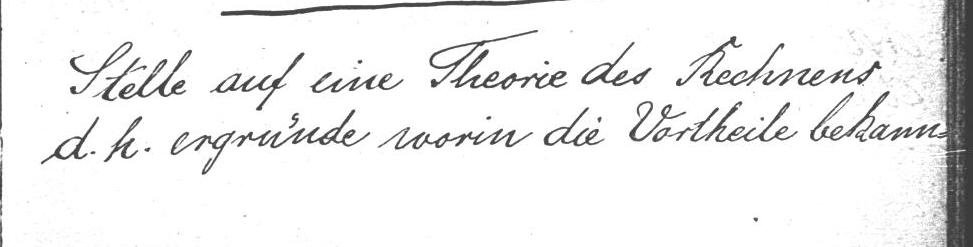 Stelle auf eine Theorie des Rechnens
d. h. ergründe worin die Vortheile bekann=